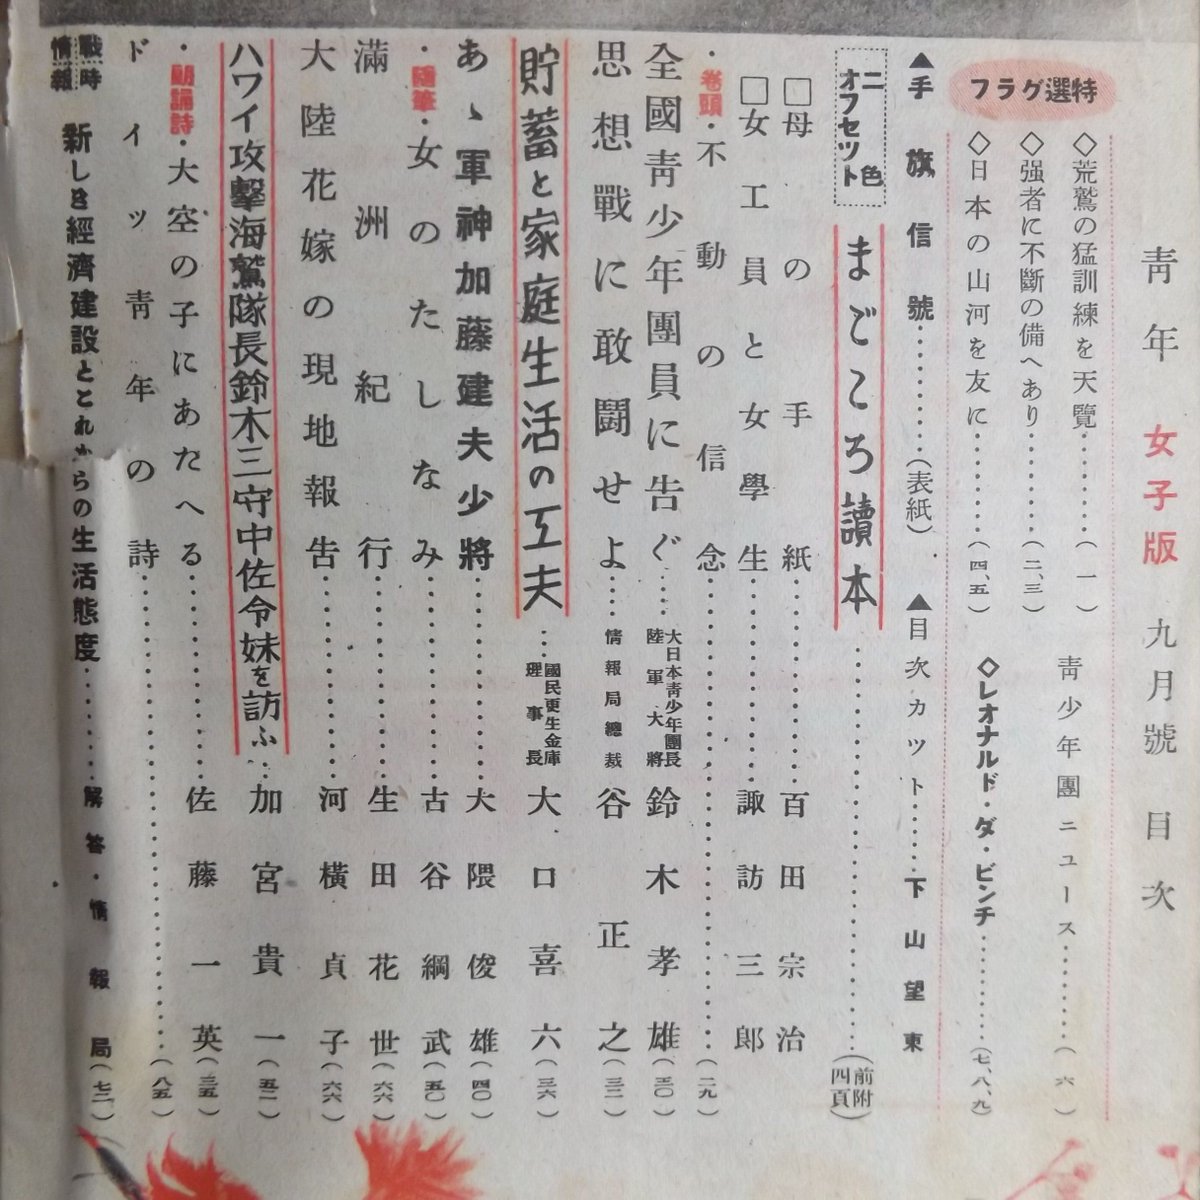 靑年 女子版 九月號 目次
特選グラフ
◇荒鷲の猛訓練を天覽…………(一)
◇强者に不斷の備へあり…………(二、三)
◇日本の山河を友に…………(四、五)
靑少年團ニュース…………(六)
◇レオナルド・ダ・ビンチ…………(七、八、九)
▲手旗信號…………(表紙)
▲目次カット…………下山望東
二色オフセット
まごころ讀本…………(前附四頁)
□母の手紙…………百田宗治
□女工員と女學生…………諏訪三郎
・卷頭・不動の信念…………(二九)
全國靑少年團員に告ぐ……大日本靑少年團長 陸軍大將 鈴木孝雄(三〇)
思想戰に敢鬪せよ……情報局總裁 谷正之(三二)
貯蓄と家庭生活の工夫……國民更生金庫理事長 大口喜六(三六)
あゝ軍神加藤建夫少將…………大隈俊雄(四〇)
・隨筆・女のたしなみ…………古谷綱武(五〇)
滿洲紀行…………生田花世(六六)
大陸花嫁の現地報告…………河橫貞子(六六)
ハワイ攻擊海鷲隊長鈴木三守中佐令妹を訪ふ……加宮貴一(五二)
・朗誦詩・大空の子にあたへる…………佐藤一英(三五)
ドイツ靑年の詩…………(八五)
戰時情報 新しき經濟建設とこれからの生活態度…………解答・情報局(七三)